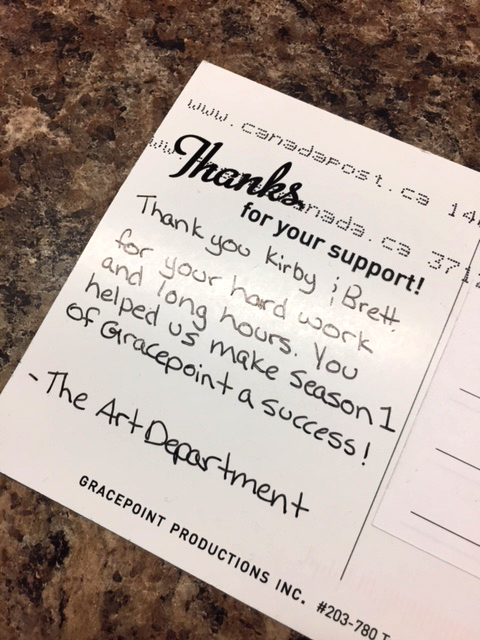 www.canadapost.ca 14
Thanks
for your support!
Thank you Kirby & Brett
for your hard work
and long hours. You
helped us make Season 1
of Gracepoint a success!
- The Art Department
GRACEPOINT PRODUCTIONS INC. #203-780 T